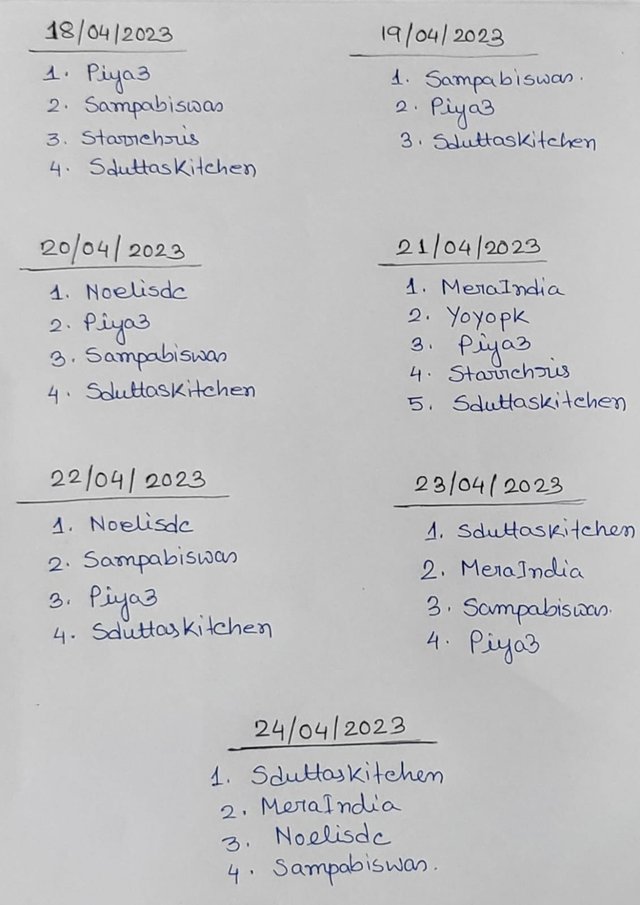 18/04/2023
1. Piya3
2. Sampabiswas
3. Starrchris
4. Sduttaskitchen
19/04/2023
1. Sampabiswas.
2. Piya3
3. Sduttaskitchen
20/04/2023
1. Noelisdc
2. Piya3
3. Sampabiswas
4. Sduttaskitchen
21/04/2023
1. MeraIndia
2. Yoyopk
3. Piya3
4. Starrchris
5. Sduttaskitchen
22/04/2023
1. Noelisdc
2. Sampabiswas
3. Piya3
4. Sduttaskitchen
23/04/2023
1. Sduttaskitchen
2. MeraIndia
3. Sampabiswas.
4. Piya3
24/04/2023
1. Sduttaskitchen
2. MeraIndia
3. Noelisdc
4. Sampabiswas.